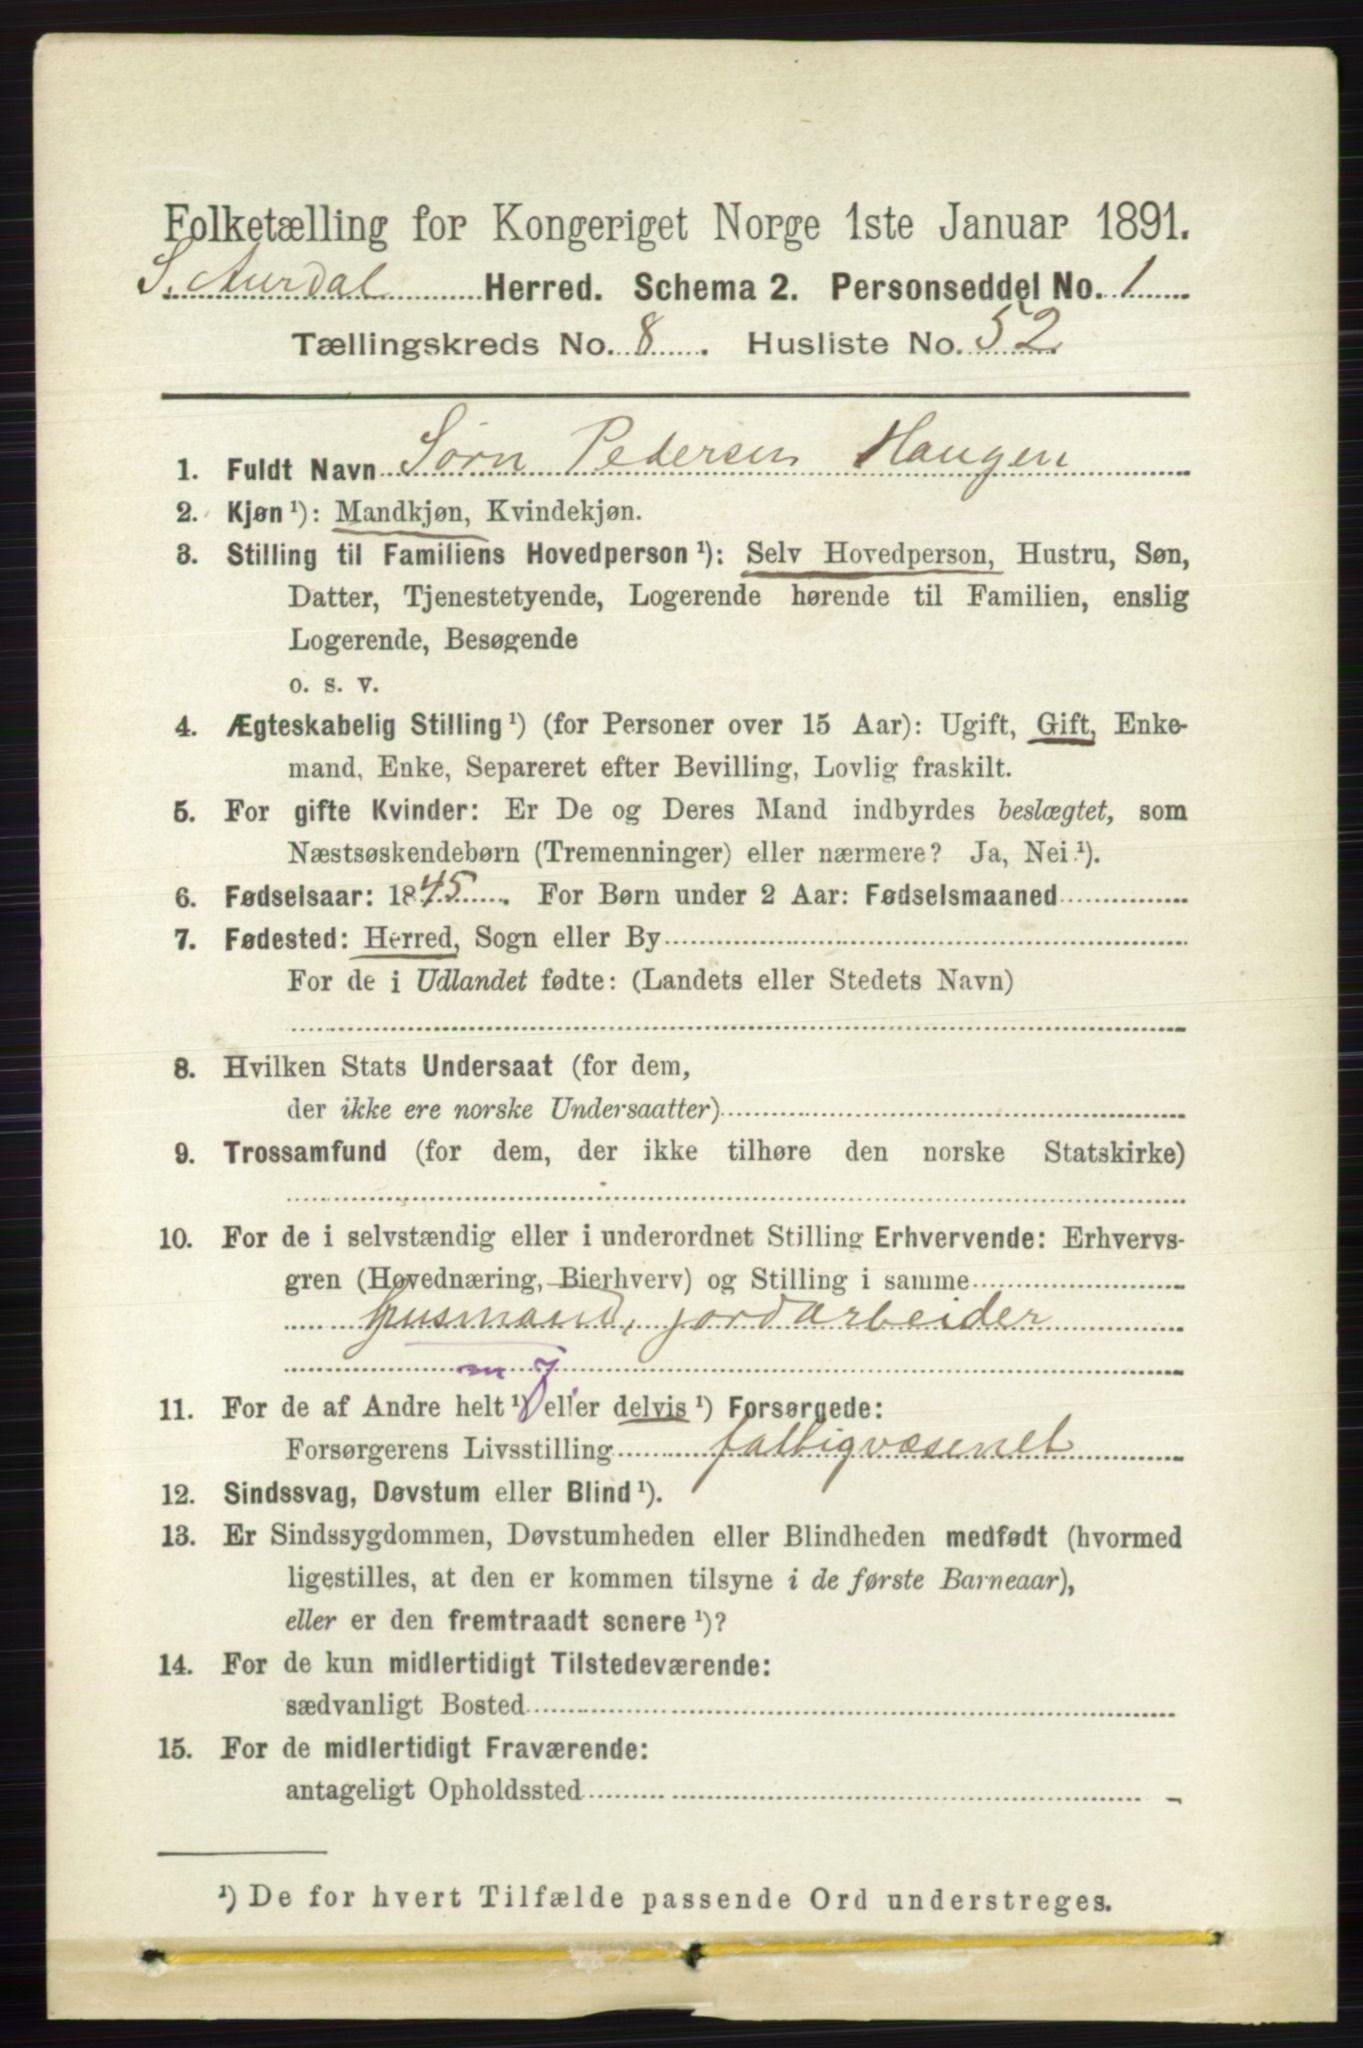 Folketælling for Kongeriget Norge 1ste Januar 1891.
S. Aurdal Herred. Schema 2. Personseddel No. 1
Tællingskreds No. 8. Husliste No. 52
1. Fuldt Navn Sørn Pedersen Haugen
2. Kjøn ¹): Mandkjøn, Kvindekjøn.
3. Stilling til Familiens Hovedperson ¹): Selv Hovedperson, Hustru, Søn,
Datter, Tjenestetyende, Logerende hørende til Familien, enslig
Logerende, Besøgende
o. s. v.
4. Ægteskabelig Stilling ¹) (for Personer over 15 Aar): Ugift, Gift, Enke-
mand, Enke, Separeret efter Bevilling, Lovlig fraskilt.
5. For gifte Kvinder: Er De og Deres Mand indbyrdes beslægtet, som
Næstsøskendebørn (Tremenninger) eller nærmere? Ja, Nei ¹).
6. Fødselsaar: 1845. For Børn under 2 Aar: Fødselsmaaned
7. Fødested: Herred, Sogn eller By
For de i Udlandet fødte: (Landets eller Stedets Navn)
8. Hvilken Stats Undersaat (for dem,
der ikke ere norske Undersaatter)
9. Trossamfund (for dem, der ikke tilhøre den norske Statskirke)
10. For de i selvstændig eller i underordnet Stilling Erhvervende: Erhvervs-
gren (Hovednæring, Bierhverv) og Stilling i samme
Husmand, jordarbeider
m J
11. For de af Andre helt ¹) eller delvis ¹) Forsørgede:
Forsørgerens Livsstilling fattigvæsenet
12. Sindssvag, Døvstum eller Blind ¹).
13. Er Sindssygdommen, Døvstumheden eller Blindheden medfødt (hvormed
ligestilles, at den er kommen tilsyne i de første Barneaar),
eller er den fremtraadt senere ¹)?
14. For de kun midlertidigt Tilstedeværende:
sædvanligt Bosted
15. For de midlertidigt Fraværende:
antageligt Opholdssted
¹) De for hvert Tilfælde passende Ord understreges.